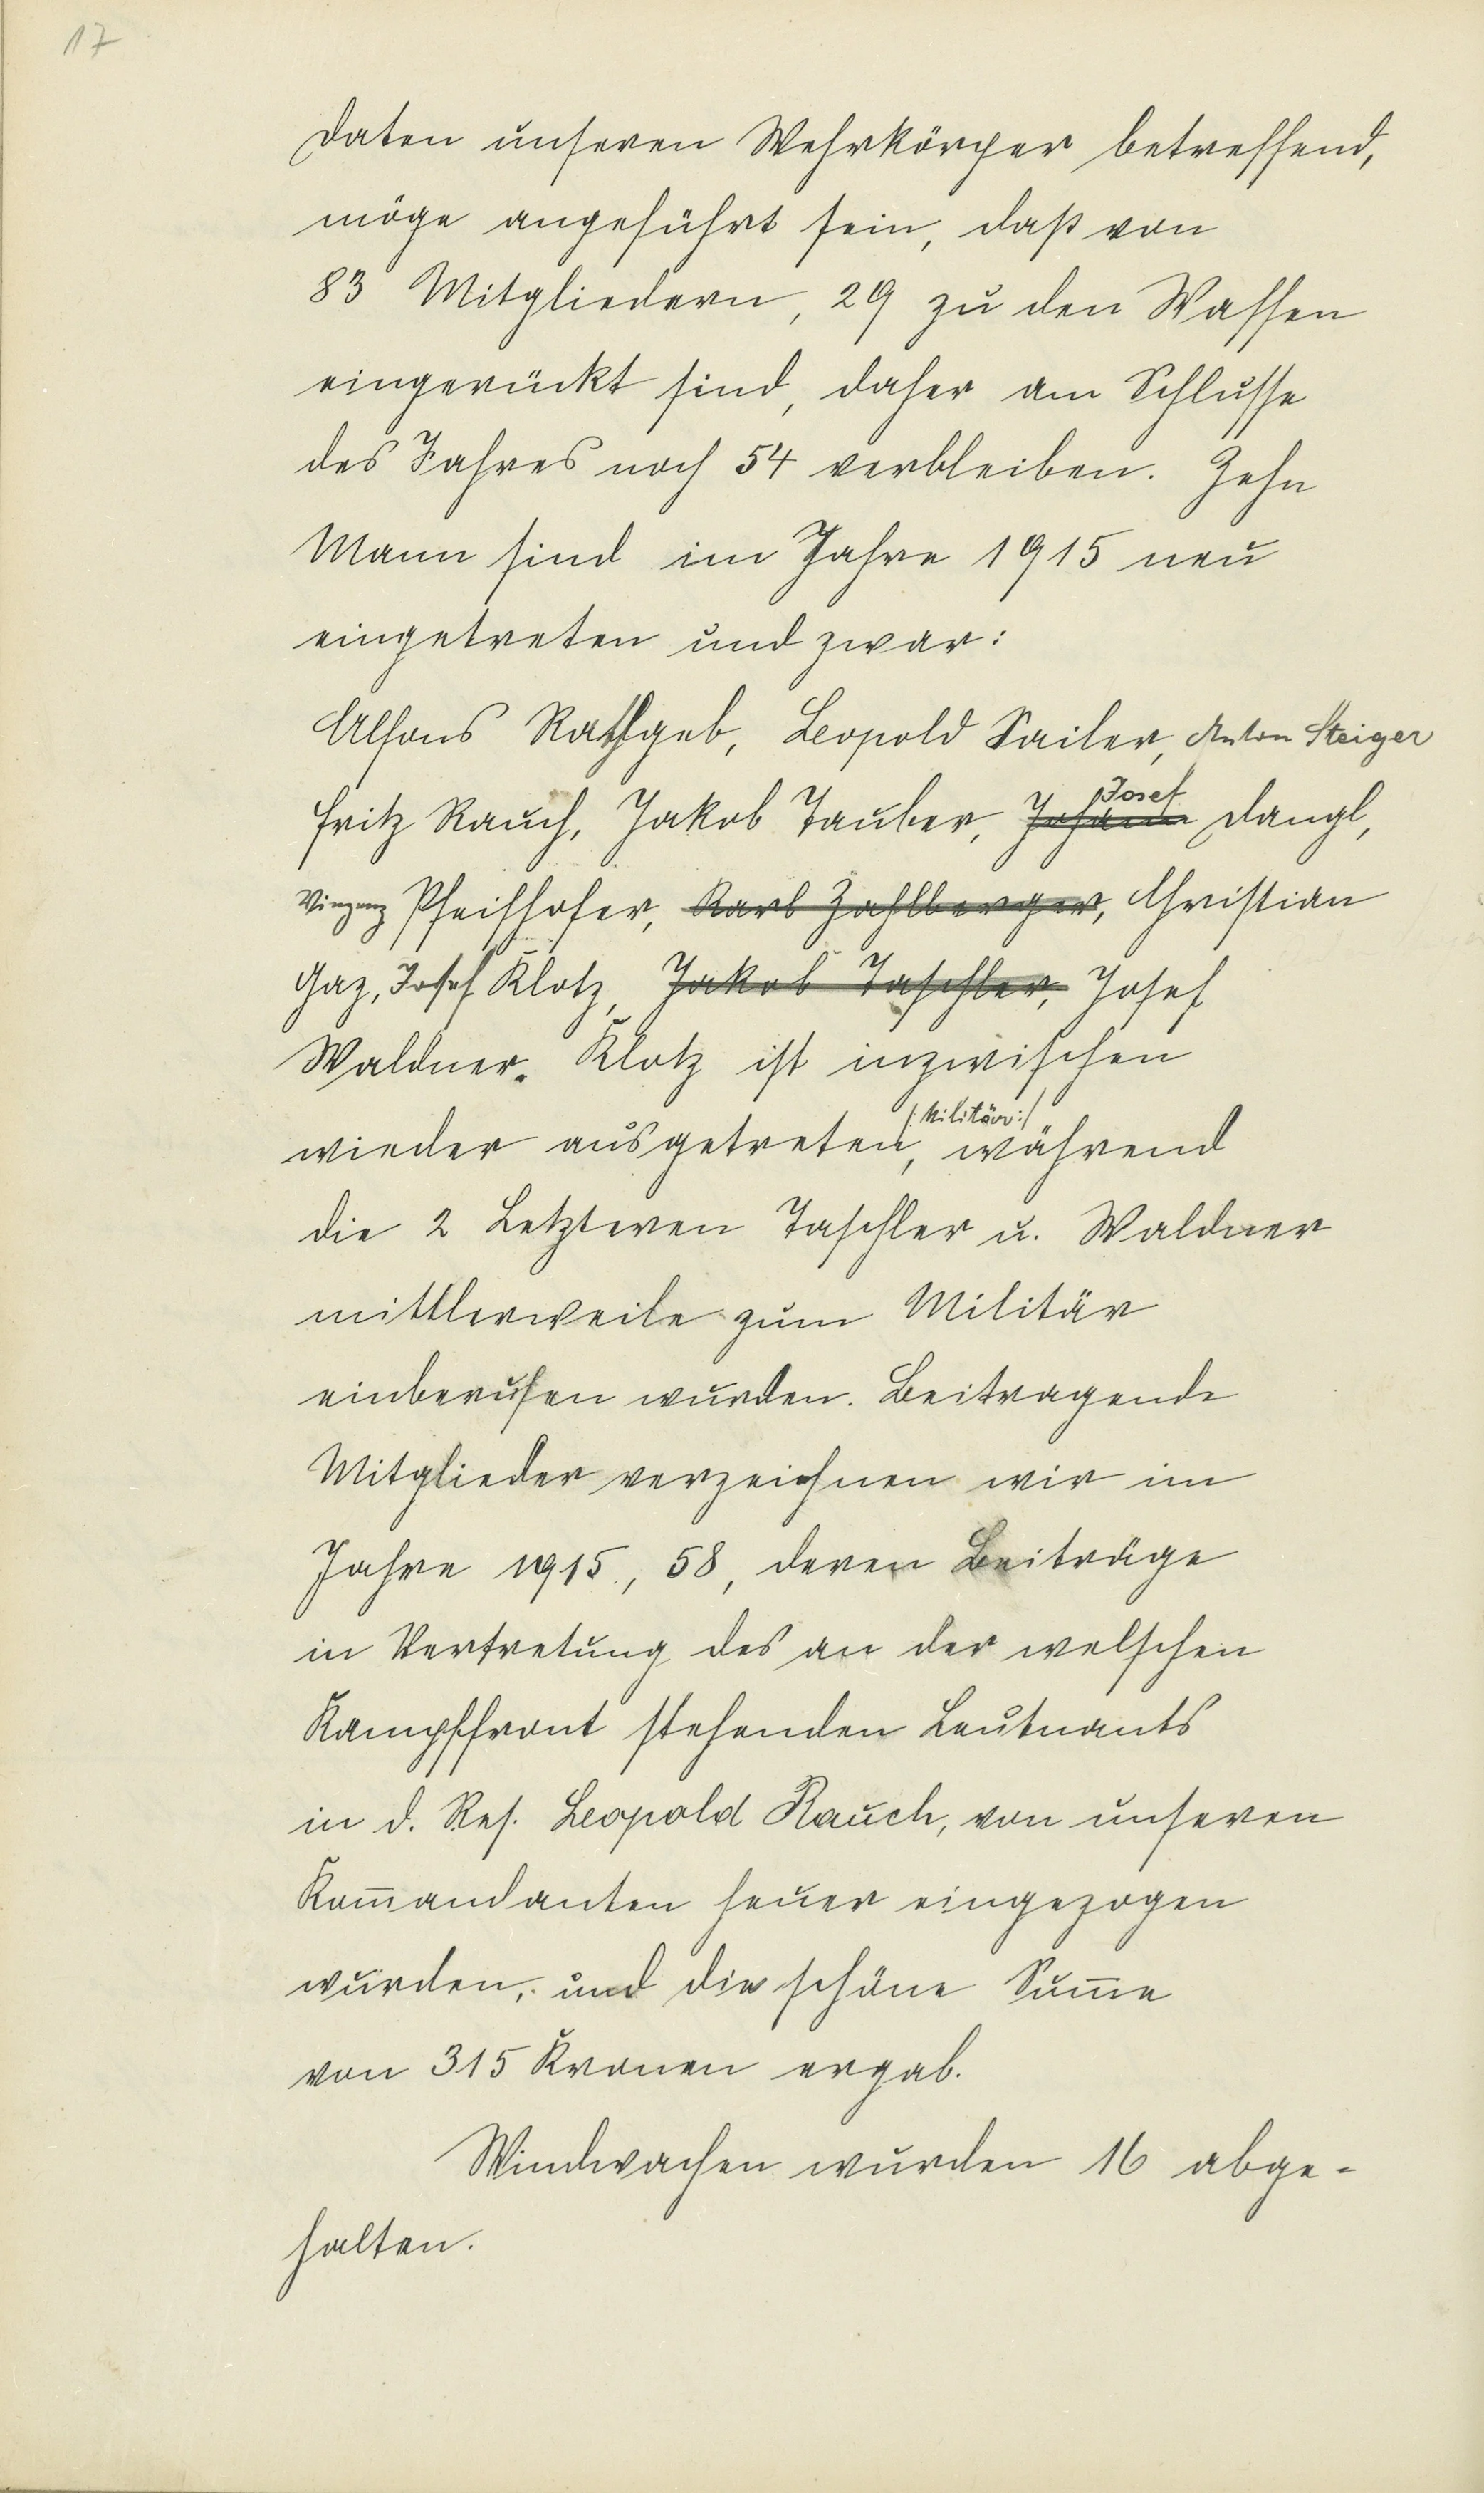 17
Daten unseren Wehrkörper betreffend,
möge angeführt sein, daß von
83 Mitgliedern, 29 zu den Waffen
eingerückt sind, daher am Schlusse
des Jahres noch 54 verbleiben. Zehn
Mann sind im Jahre 1915 neu
eingetreten und zwar:
Alfons Rathgeb, Leopold Sailer, Anton Steiger
Josef
Fritz Rauch, Jakob Tauber, Johann Dangl,
Vinzenz Pfeifhofer, Karl Zahlberger, Christian
Gaz, Josef Klotz, Jakob Taschler, Josef
Waldner. Klotz ist inzwischen
/:Militär:/
wieder ausgetreten, während
die 2 Letzteren Taschler u. Waldner
mittlerweile zum Militär
einberufen wurden. Beitragende
Mitglieder verzeichnen wir im
Jahre 1915, 58, deren Beiträge
in Vertretung des an der welschen
Kampffront stehenden Leutnants
in d. Res. Leopold Rauch, von unseren
Kom̅andanten heuer eingezogen
wurden, und die schöne Sum̅e
von 315 Kronen ergab.
Windwachen wurden 16 abge-
halten.